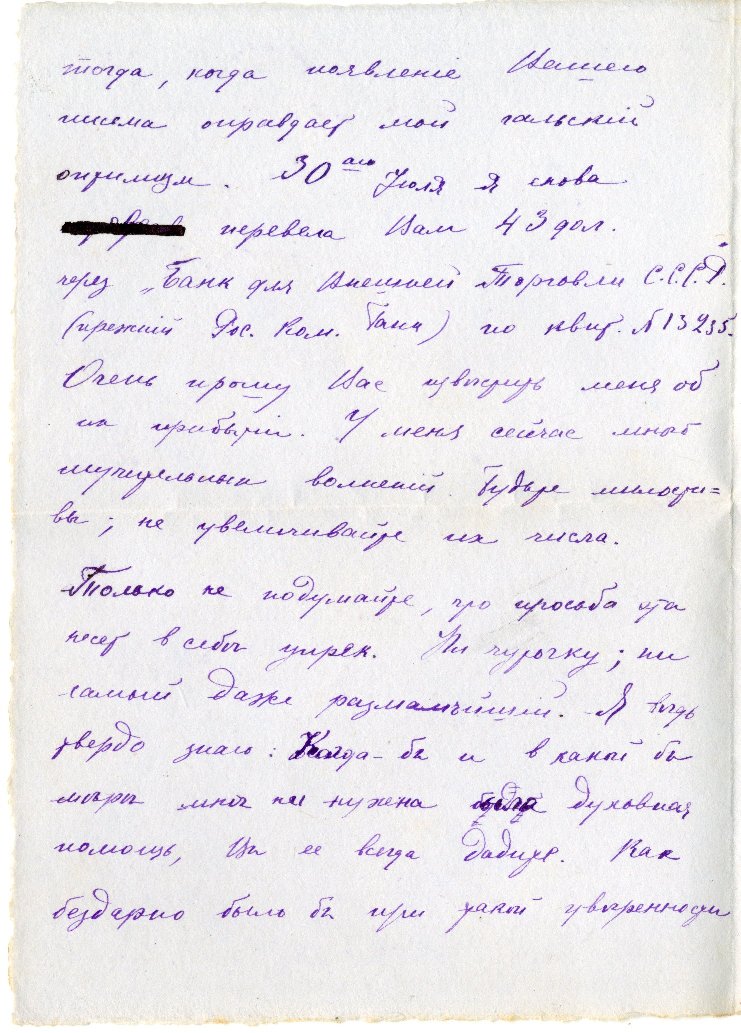 тогда, когда появленіе Вашего
письма оправдает мой гальскій
оптимизм. 30аго Іюля я снова
перевела Вам 43 дол.
через „Банк для Внешней Торговли С.С.С.Р.
(прежній Рос. Ком. Банк) по квит. № 13235.
Очень прошу Вас извѣстить меня об
их прибытіи. У меня сейчас много
мучительных волненій. Будьте милости=
вы; не увеличивайте их числа.
Только не подумайте, что просьба эта
несет в себѣ упрек. Ни чуточку; ни
самый даже размалѣйшій. Я вѣдь
твердо знаю: Когда-бы и в какой бы
мѣрѣ мнѣ ни нужна была духовная
помощь, Вы ее всегда дадите. Как
бездарно было бы при такой увѣренности